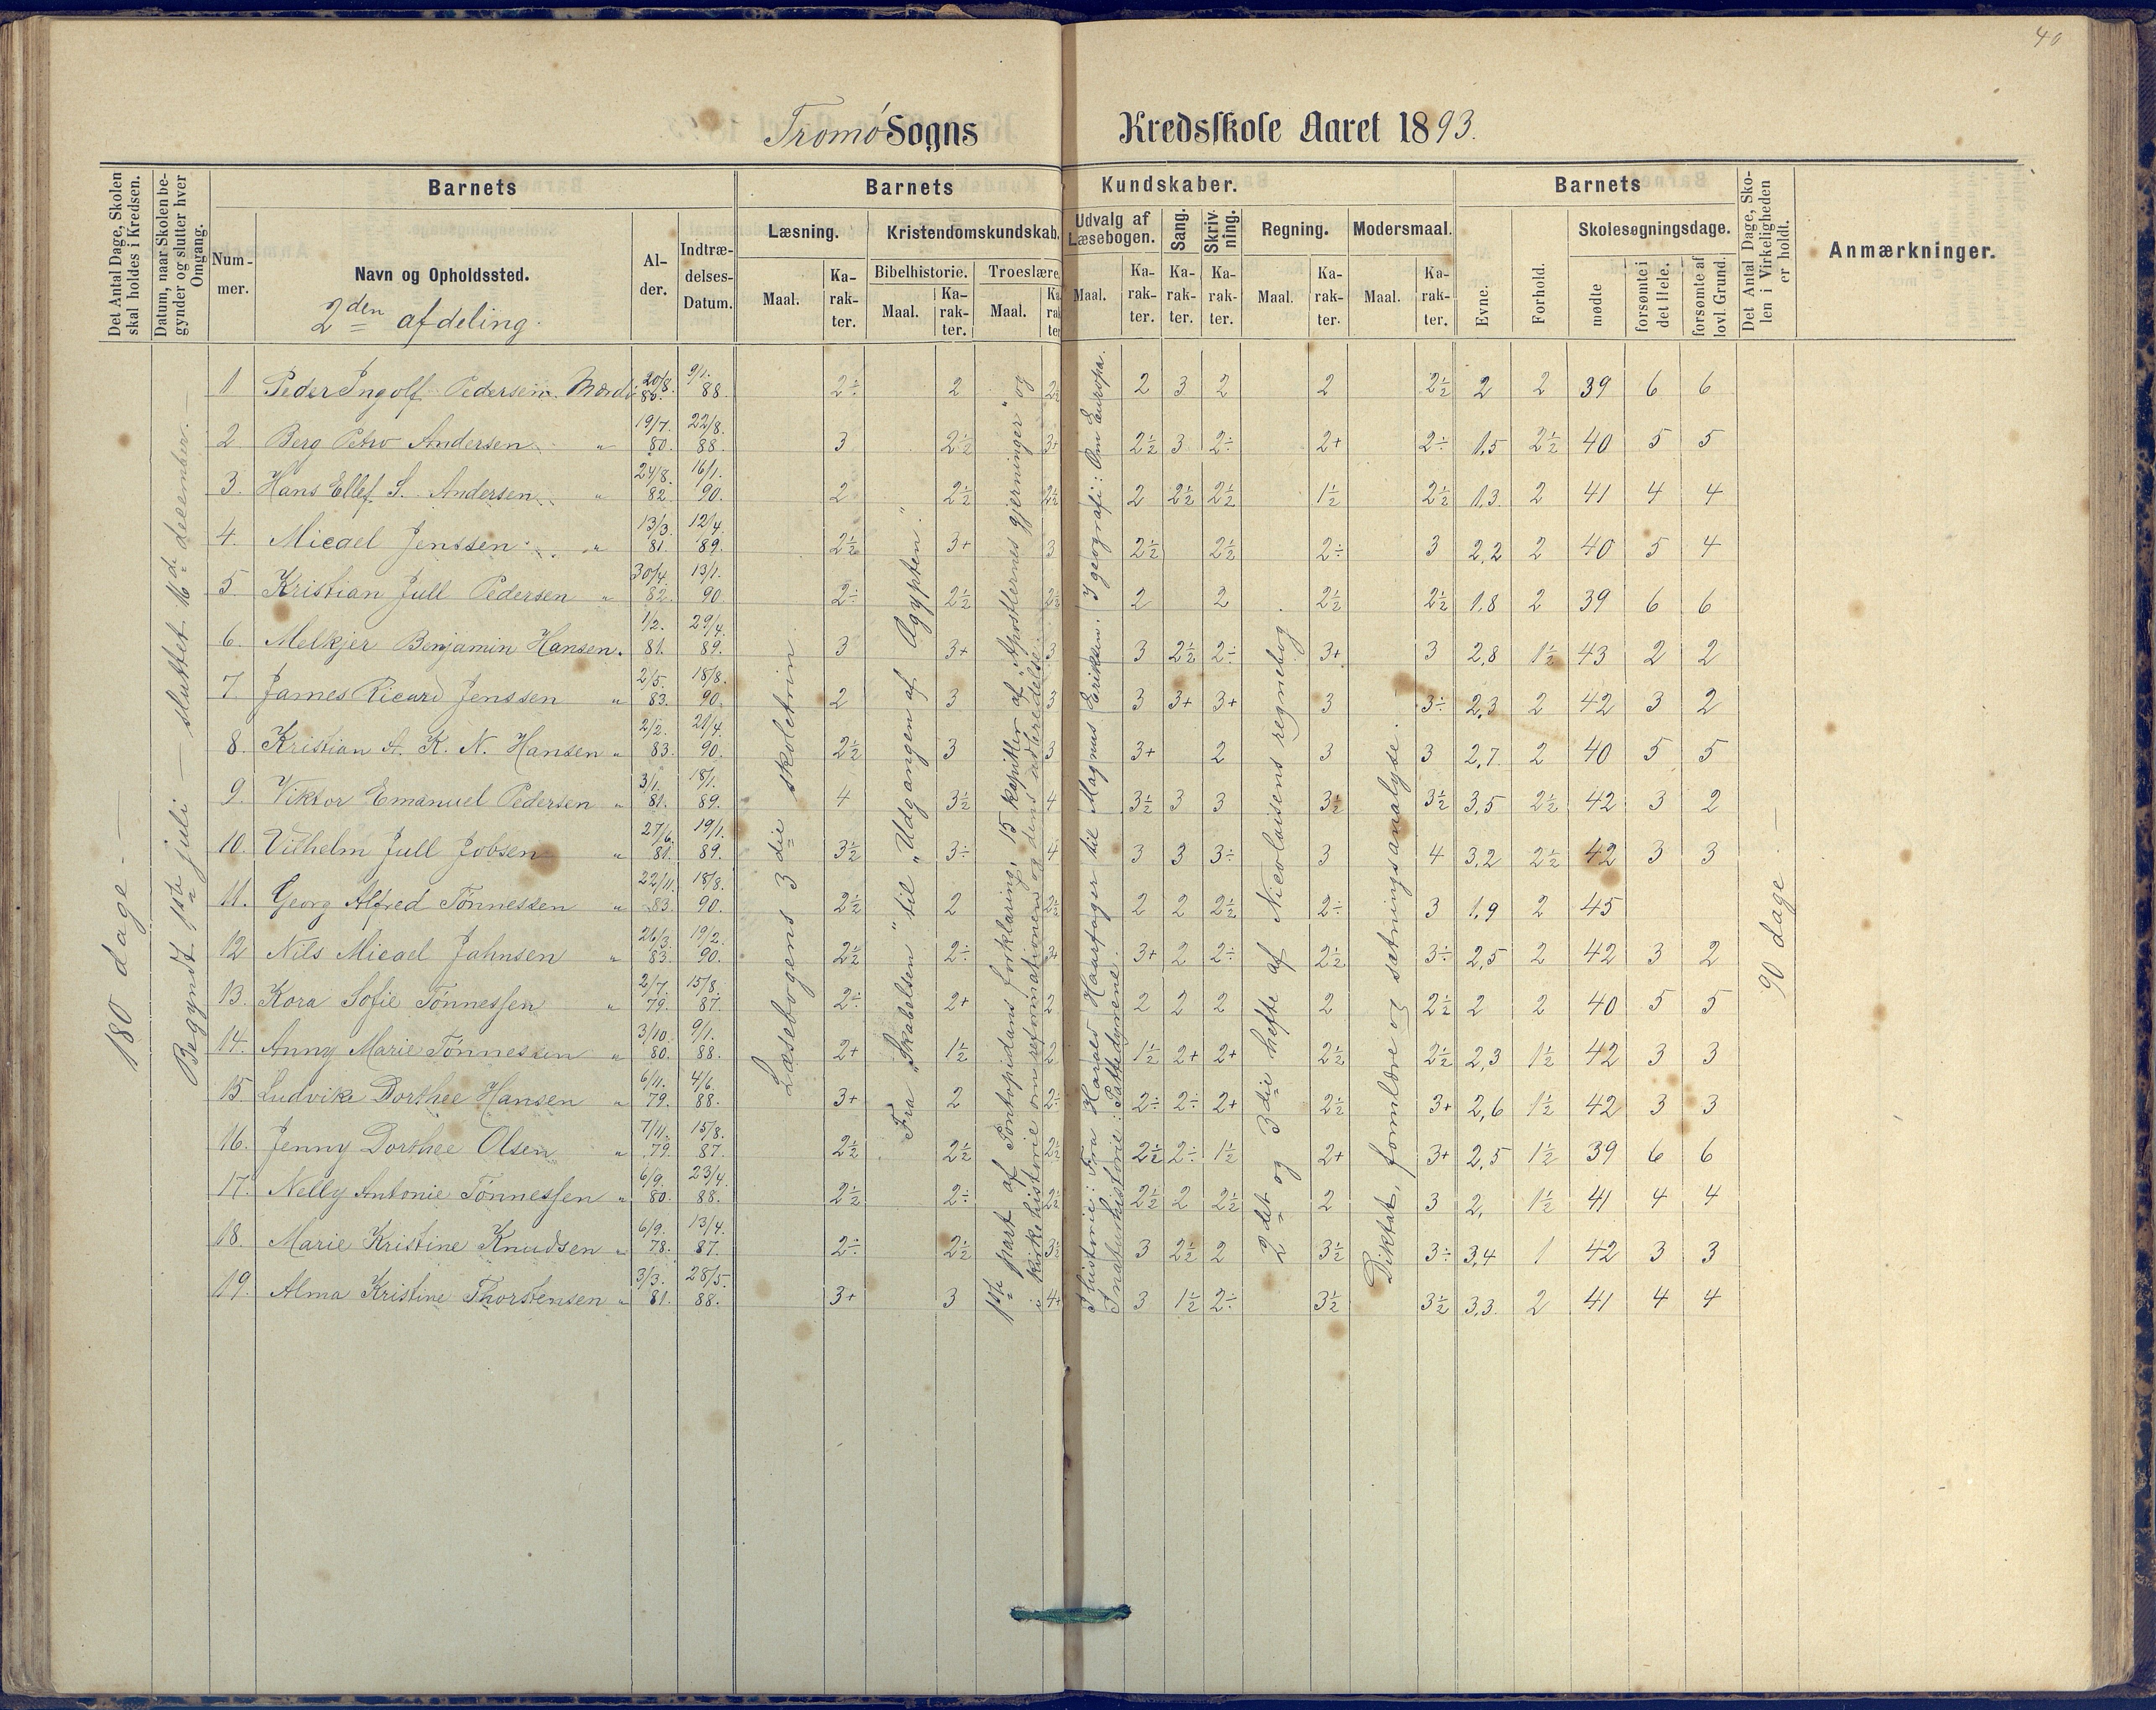 40
Tromø Sogns Kredsskole Aaret 1893.
Det Antal Dage, Skolen skal holdes i Kredsen.
Datum, naar Skolen begynder og slutter hver Omgang.
Barnets
Barnets Kundskaber.
Barnets
Det Antal Dage, Skolen i Virkeligheden er holdt.
Anmærkninger.
Nummer.
Navn og Opholdssted.
2den afdeling.
Alder.
Indtrædelses-Datum.
Læsning.
Kristendomskundskab.
Udvalg af Læsebogen.
Sang.
Skrivning.
Regning.
Modersmaal.
Evne.
Forhold.
Skolesøgningsdage.
Bibelhistorie.
Troeslære.
Maal.
Karakter.
Maal.
Karakter.
Maal.
Karakter.
Maal.
Karakter.
Karakter.
Karakter.
Maal.
Karakter.
Maal.
Karakter.
mødte
forsømte i det Hele.
forsømte af lovl. Grund.
180 dage. —
Begyndt 1ste juli — sluttet 16d december. —
Læsebogens 3die skoletrin
Fra "Skabelsen" til "Udgangen af Ægypten."
1ste part af Pontopidans forklaring, 15 kapitler af "Apostlernes gjerninger" og
i kirkehistorie om reformationen og dens udbredelse.
I historie: Fra Harald Haarfager til Magnus Eriksen. I geografi: Om Europa.
I naturhistorie: Pattedyrene.
2det og 3die hefte af Nicolaisens regnebog
Diktat, formlære og sætningsanalyse. —
90 dage —
1 Peder Ingolf Pedersen. Mærdø 20/8. 80. 9/1. 88. 2÷ 2 2½ 2 3 2 2 2½ 2 2 39 6 6
2 Berg Petro Andersen " 19/7. 80. 22/8. 88. 3 2½ 3+ 2½ 3 2÷ 2+ 2÷ 1,5 2½ 40 5 5
3. Hans Ellef S. Andersen " 24/8. 82. 16/1. 90. 2 2½ 2½ 2 2½ 2½ 1½ 2½ 1,3 2 41 4 4
4. Micael Jenssen " 13/3. 81. 12/4. 89. 2½ 3+ 3 2½ 2½ 2÷ 3 2,2 2 40 5 4
5. Kristian Jull Pedersen " 30/4. 82. 13/1. 90 2÷ 2½ 2½ 2 2 2½ 2½ 1,8 2 39 6 6
6. Melkjer Benjamin Hansen. 1/2. 81. 29/4. 89. 3 3+ 3 3 2½ 2÷ 3+ 3 2,8 1½ 43 2 2
7. James Ricard Jenssen " 2/5. 83. 18/8. 90. 2 3 3 3 3+ 3+ 3 3÷ 2,3 2 42 3 2
8. Kristian A. K. N. Hansen " 2/2. 83. 21/4. 90. 2½ 3 3 3+ 2 3 3 2,7. 2 40 5 5
9. Viktor Emanuel Pedersen " 3/1. 81. 18/1. 89. 4 3½ 4 3½ 3 3 3½ 3½ 3,5 2½ 42 3 2
10. Vilhelm Jull Jobsen " 27/6. 81. 19/1. 89. 3½ 3÷ 4 3 3 3÷ 3 4 3,2 2½ 42 3 3
11. Georg Alfred Tønnessen " 22/11. 83. 18/8. 90. 2½ 2 2½ 2 2 2½ 2÷ 3 1,9 2 45
12 Nils Micael Jahnsen " 26/3. 83. 19/2. 90. 2½ 2÷ 3+ 3+ 2 2÷ 2½ 3÷ 2,5 2 42 3 2
13. Kora Sofie Tønnessen " 2/7. 79. 15/8. 87. 2÷ 2+ 2 2 2 2 2 2½ 2 2 40 5 5
14. Anny Marie Tønnessen " 3/10. 80. 9/1. 88. 2+ 1½ 2 1½ 2+ 2+ 2½ 2½ 2,3 1½ 42 3 3
15. Ludvike Dorthee Hansen " 6/11. 79. 4/6. 88. 3+ 2 2÷ 2÷ 2÷ 2+ 2½ 3+ 2,6 1½ 42 3 3
16. Jenny Dorthee Olsen " 7/11. 79. 15/8. 87. 2½ 2½ 2½ 2½ 2÷ 1½ 2+ 3+ 2,5 1½ 39 6 6
17. Nelly Antonie Tønnessen " 6/9. 80. 23/4. 88. 2½ 2÷ 2½ 2½ 2 2½ 2 3 2, 1½ 41 4 4
18. Marie Kristine Knudsen " 6/9. 78. 13/4. 87. 2÷ 2½ 3½ 3 2½ 2 3½ 3÷ 3,4 1 42 3 3
19. Alma Kristine Thorstensen " 3/3. 81. 28/5. 88. 3+ 3 4+ 3 1½ 2÷ 3½ 3½ 3,3. 2 41 4 4